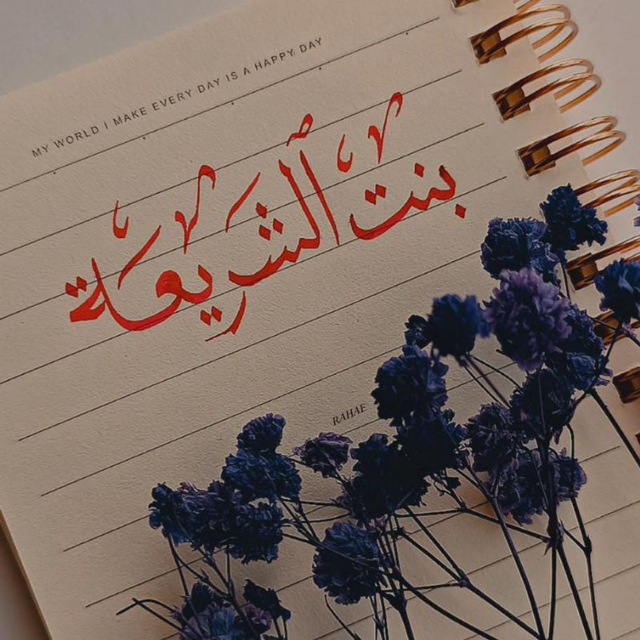 MY WORLD I MAKE EVERY DAY IS A HAPPY DAY
بنت الشريعة
RAHAF